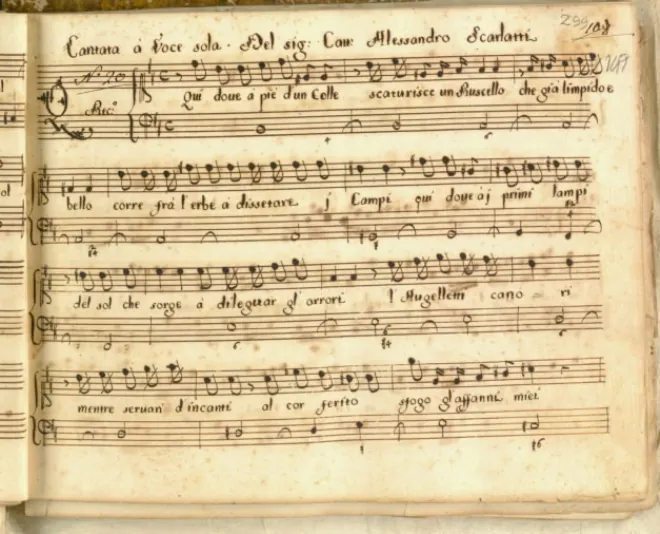 Cantata à Voce sola. Del sig: Cau: Alessandro Scarlatti
108
N.º 20
Rec.º
Qui doue à piè d'un Colle scaturisce un Ruscello che già limpido e
bello corre frà l'erbe à dissetare j Campi qui doue à j primi lampi
del sol che sorge à dileguar gl'orrori l'Augelletti cano = ri
mentre seruan d'incanti al cor ferito sfogo gl'affanni miei